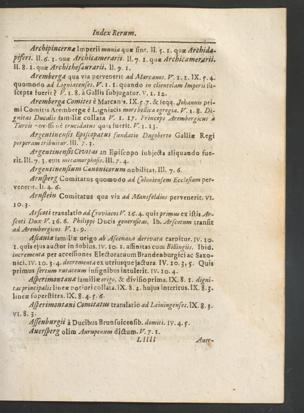 Index Rerum.
Archipincerna Imperii munia quæ sint. II. 5. 1. quæ Archida-
piferi. II. 6. 1. quæ Archicamerarii. II. 7. 1. quæ Archicamerarii.
II. 8. 1. quæ Archithesaurarii. II. 9. 1.
Aremberga qua via pervenerit ad Marcanos. V. 1. 1. IX. 5. 4.
quomodo ad Lignatenses. V. 1. 1. quando in clientelam Imperii su-
scepta fuerit? V. 1. 8. à Gallis subjugatur. V. 1. 12.
Aremberga Comites è Marcan's. IX. 5. 7. & seqq. Johannis pri-
mi Comitis Aremberga è Ligniacis mors bellica egregia. V. 1. 8. Di-
gnitas Ducalis familiæ collata V. 1. 17. Princeps Arembergicus à
Turcis fuerit. V. 1. 13.
Argentinensis Episcopatus fundatio Dagoberto Galliæ Regi
perperam tribuitur. III. 7. 1.
Argentinensis Civitas an Episcopo subjecta aliquando fue-
rit. III. 7. 3. ejus metamorphosis. III. 7. 4.
Argentinensium Canonicorum nobilitas. III. 7. 6.
Arnsberg Comitatus quomodo ad Coloniensem Ecclesiam per-
venerit. II. 4. 6.
Arnstein Comitatus qua via ad Mansfeldios pervenerit. VI.
10. 3.
Arscoti translatio ad Croviacos V. 16. 4. quis primus ex istis Ar-
scoti Dux V. 16. 6. Philippi Ducis generositas. Ib. Arscotum transit
ad Arembergicos V. 1. 9.
Ascania familiæ origo ab Ascenazo derivata carpitur. IV. 10.
1. quis ejus auctor in subliu. IV. 10. 1. affinitas cum Billingiis. Ibid.
incrementa per accessiones Electoratuum Brandenburgici ac Saxo-
nici. IV. 10. 3. 4. decrementa ex utriusque jactura IV. 10. 3. 5. Quis
primus sertum rutaceum insignibus intulerit. IV. 10. 4.
Asperimontana familiæ origo, & divisio prima. IX. 8. 1. digni-
tas principalis lineæ potiori collata. IX. 8. 4. hujus interitus. IX. 8. 3.
lineæ superstites. IX. 8. 4. 5. 6.
Asperimontani Comitatus translatio ad Leiningenses. IX. 8. 3.
VI. 8. 3.
Assenburgii à Ducibus Brunsuicensib. domiti. IV. 4. 5.
Auersperg olim Aurupenum dictum. V. 7. 1.
Lllll
Auer-